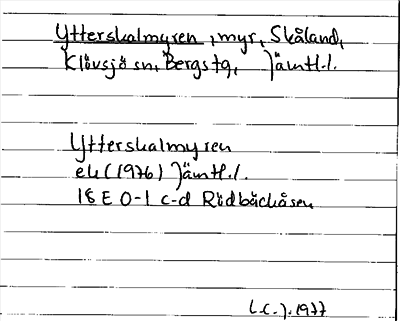 Ytterskalmyren, myr, Skåland,
Klövsjö sn, Bergs tg, Jämtl.l.
Ytterskalmyren
ek (1976) Jämtl.l.
18 E 0-1 c-d Rödbäcksåsen
L.C.J. 1977